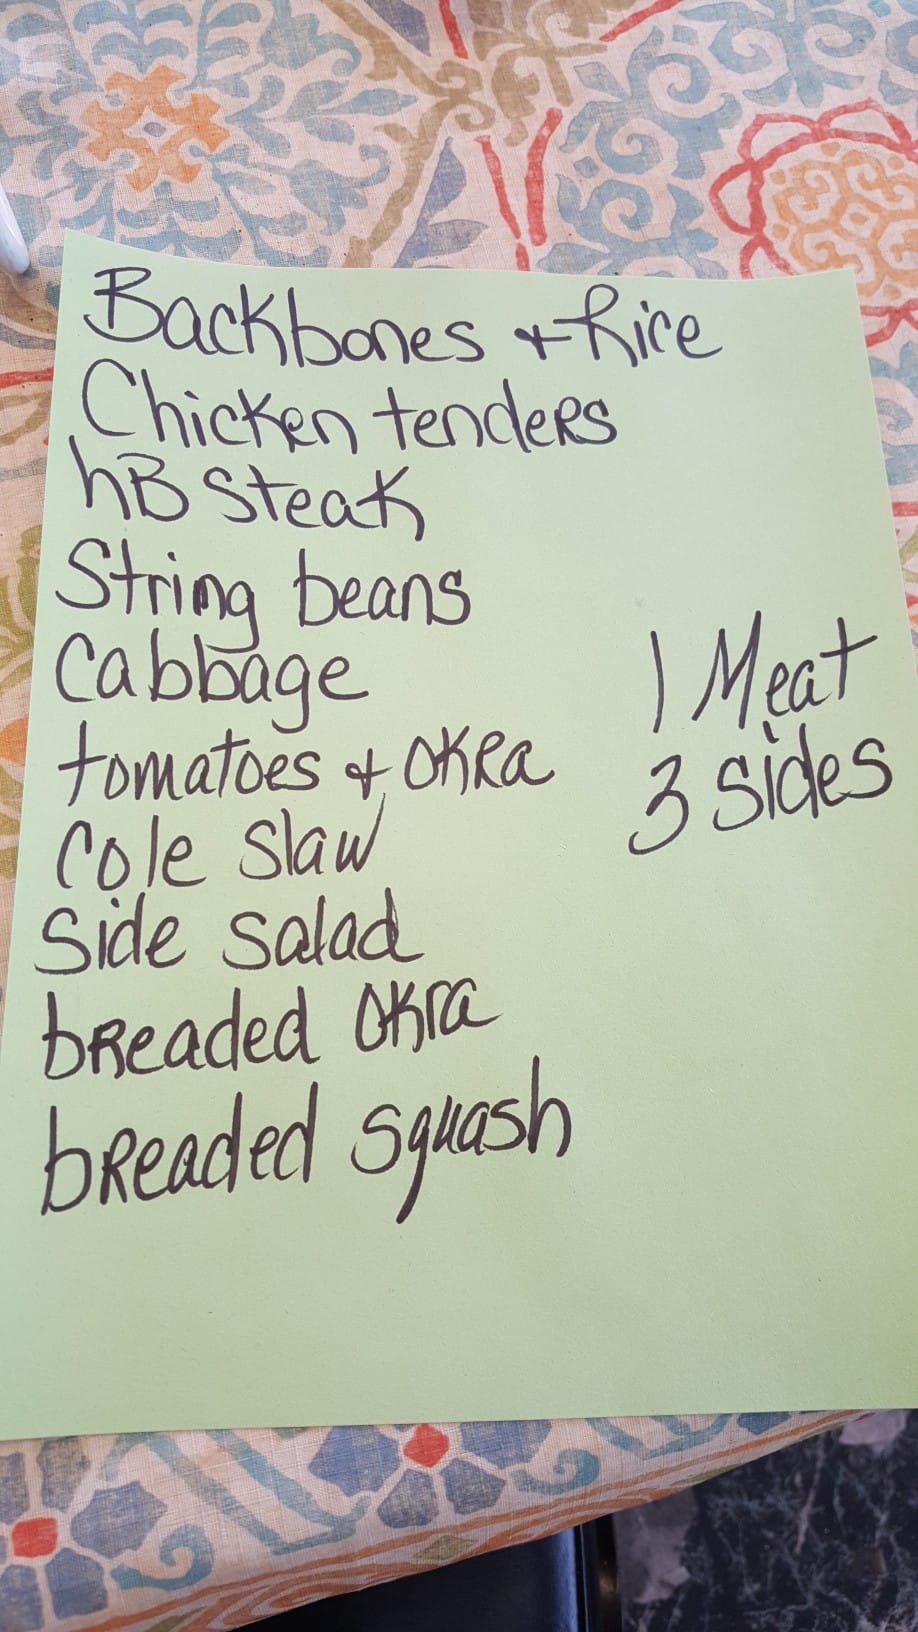 Backbones & Rice
Chicken tenders
hB Steak
String beans
Cabbage
tomatoes & OKRa
Cole slaw
Side salad
bReaded Okra
bReaded squash
1 Meat
3 sides